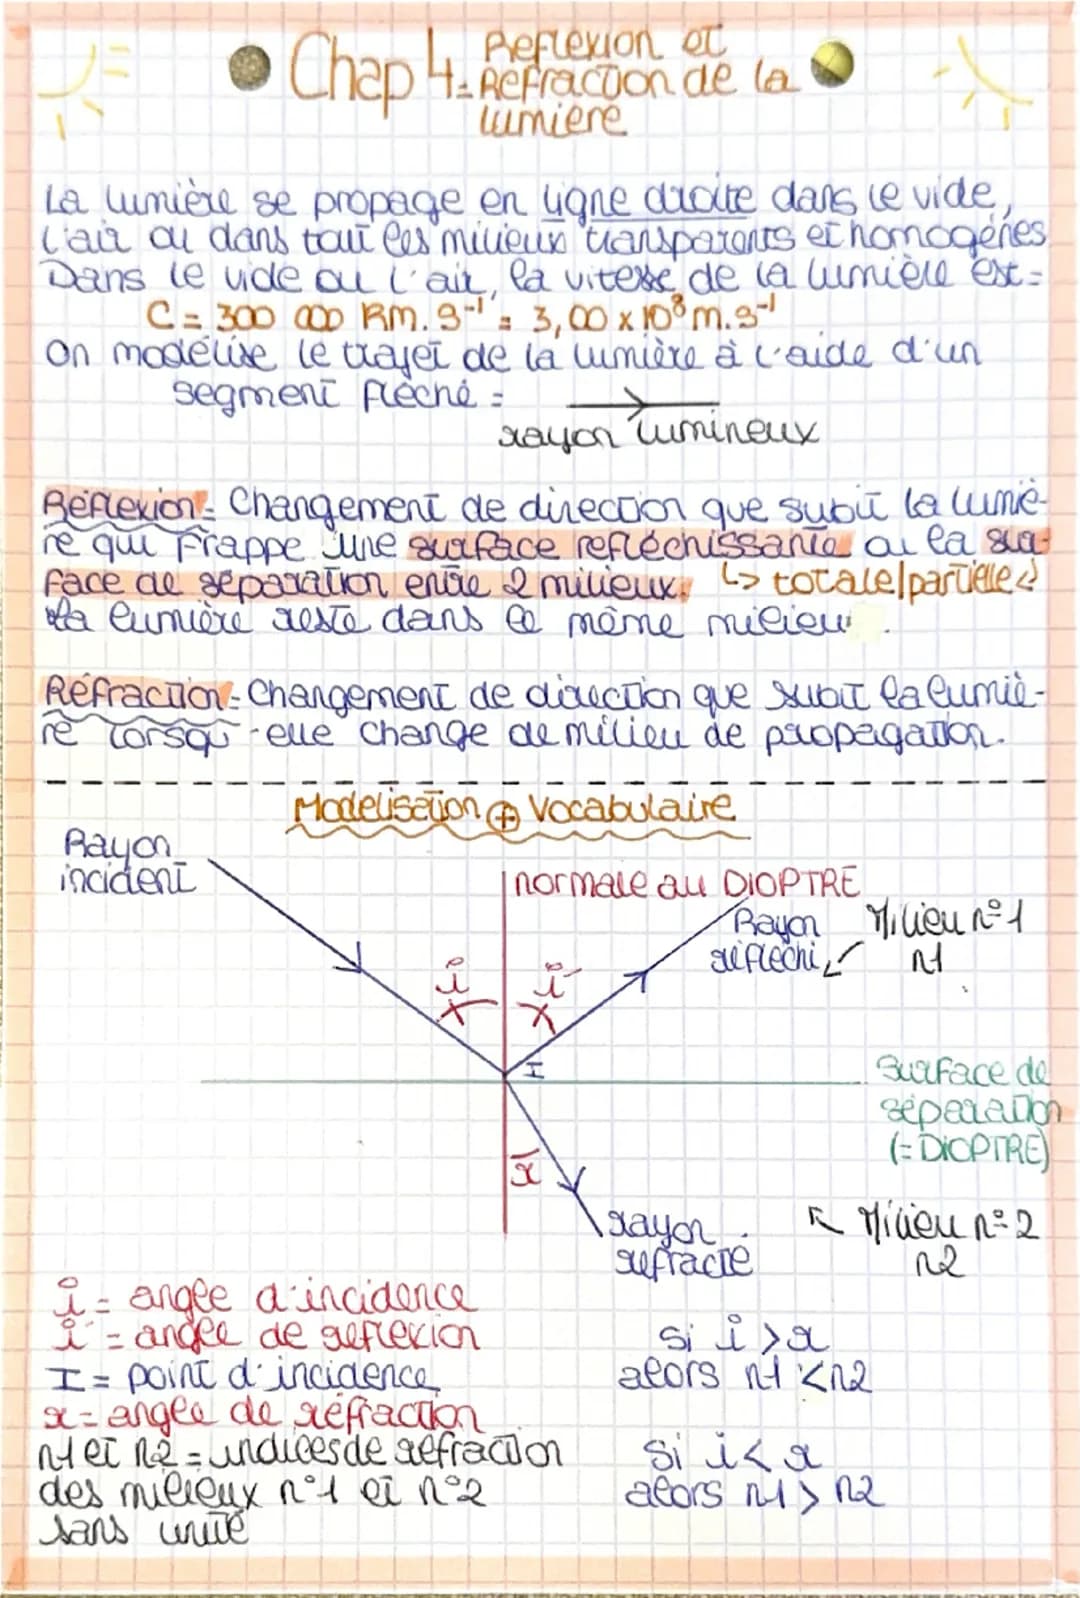 Chap 4: Réflexion et
Réfraction de la
lumière
La lumière se propage en ligne droite dans le vide,
l'air ou dans tout les milieux transparents et homogénes
Dans le vide ou l'air, la vitesse de la lumière est:
C = 300 000 Km.s⁻¹ = 3,00 x 10⁸ m.s⁻¹
On modélise le trajet de la lumière à l'aide d'un
segment fléché :
rayon lumineux
Réflexion: Changement de direction que subit la lumiè-
re qui frappe une surface réfléchissante ou la sur-
face de séparation entre 2 milieux. ↳ totale/partielle
La lumière reste dans le même milieu.
Réfraction: Changement de direction que subit la lumiè-
re lorsqu'elle change de milieu de propagation.
Modélisation ⊕ Vocabulaire
Rayon
incident
normale au DIOPTRE
Rayon
réfléchi
Milieu n°1
n1
i
i'
I
Surface de
séparation
(= DIOPTRE)
r
rayon
réfracté
Milieu n°2
n2
i = angle d'incidence
i' = angle de réflexion
I = point d'incidence
r = angle de réfraction
n1 et n2 = indices de réfraction
des milieux n°1 et n°2
sans unité
si i > r
alors n1 < n2
si i < r
alors n1 > n2